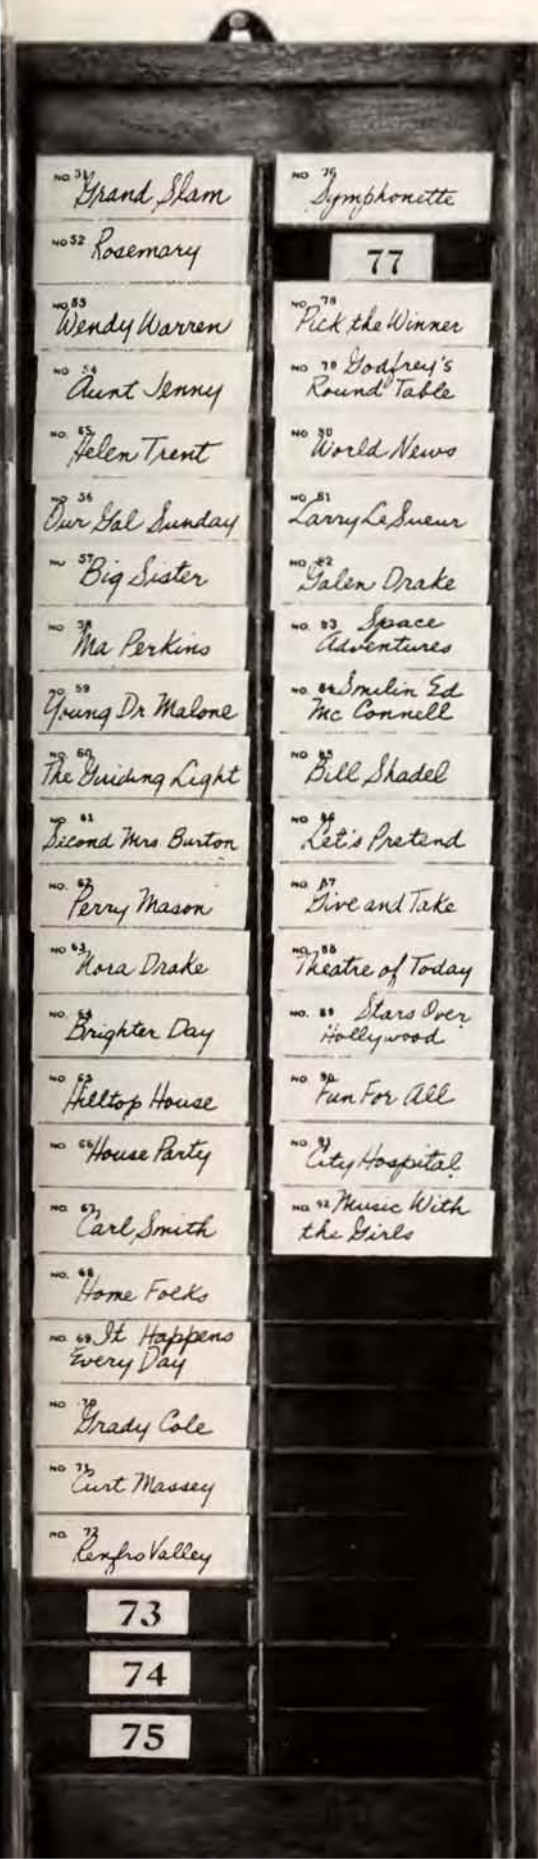 NO 51
Grand Slam
NO 52 Rosemary
NO 53
Wendy Warren
NO 54
Aunt Jenny
NO. 55
Helen Trent
NO 56
Our Gal Sunday
NO 57
Big Sister
NO 58
Ma Perkins
NO. 59
Young Dr Malone
NO. 60
The Guiding Light
NO 61
Second Mrs. Burton
NO. 62
Perry Mason
NO 63
Nora Drake
NO. 64
Brighter Day
NO 65
Hilltop House
NO 66 House Party
NO. 67
Carl Smith
NO. 68
Home Folks
NO. 69 It Happens
Every Day
NO 70
Grady Cole
NO 71
Curt Massey
NO. 72
Renfro Valley
73
74
75
NO 76
Symphonette
77
NO. 78
Pick the Winner
NO. 79 Godfrey's
Round Table
NO 80
World News
NO 81
Larry LeSueur
NO 82
Galen Drake
NO. 83 Space
Adventures
NO. 84 Smilin Ed
Mc Connell
NO 85
Bill Shadel
NO 86
Let's Pretend
NO. 87
Give and Take
NO. 88
Theatre of Today
NO. 89 Stars Over
Hollywood
NO 90
Fun For All
NO 91
City Hospital
NO 92 Music With
the Girls